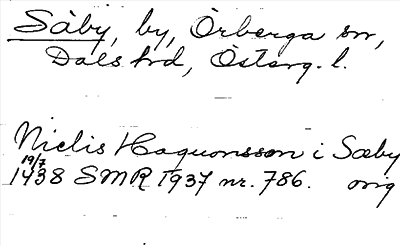 Säby, by, Örberga sn,
Dals hd, Österg. l.
Niclis Haquonsson i Sæby
19/7
1438 SMR 1937 nr. 786. orig